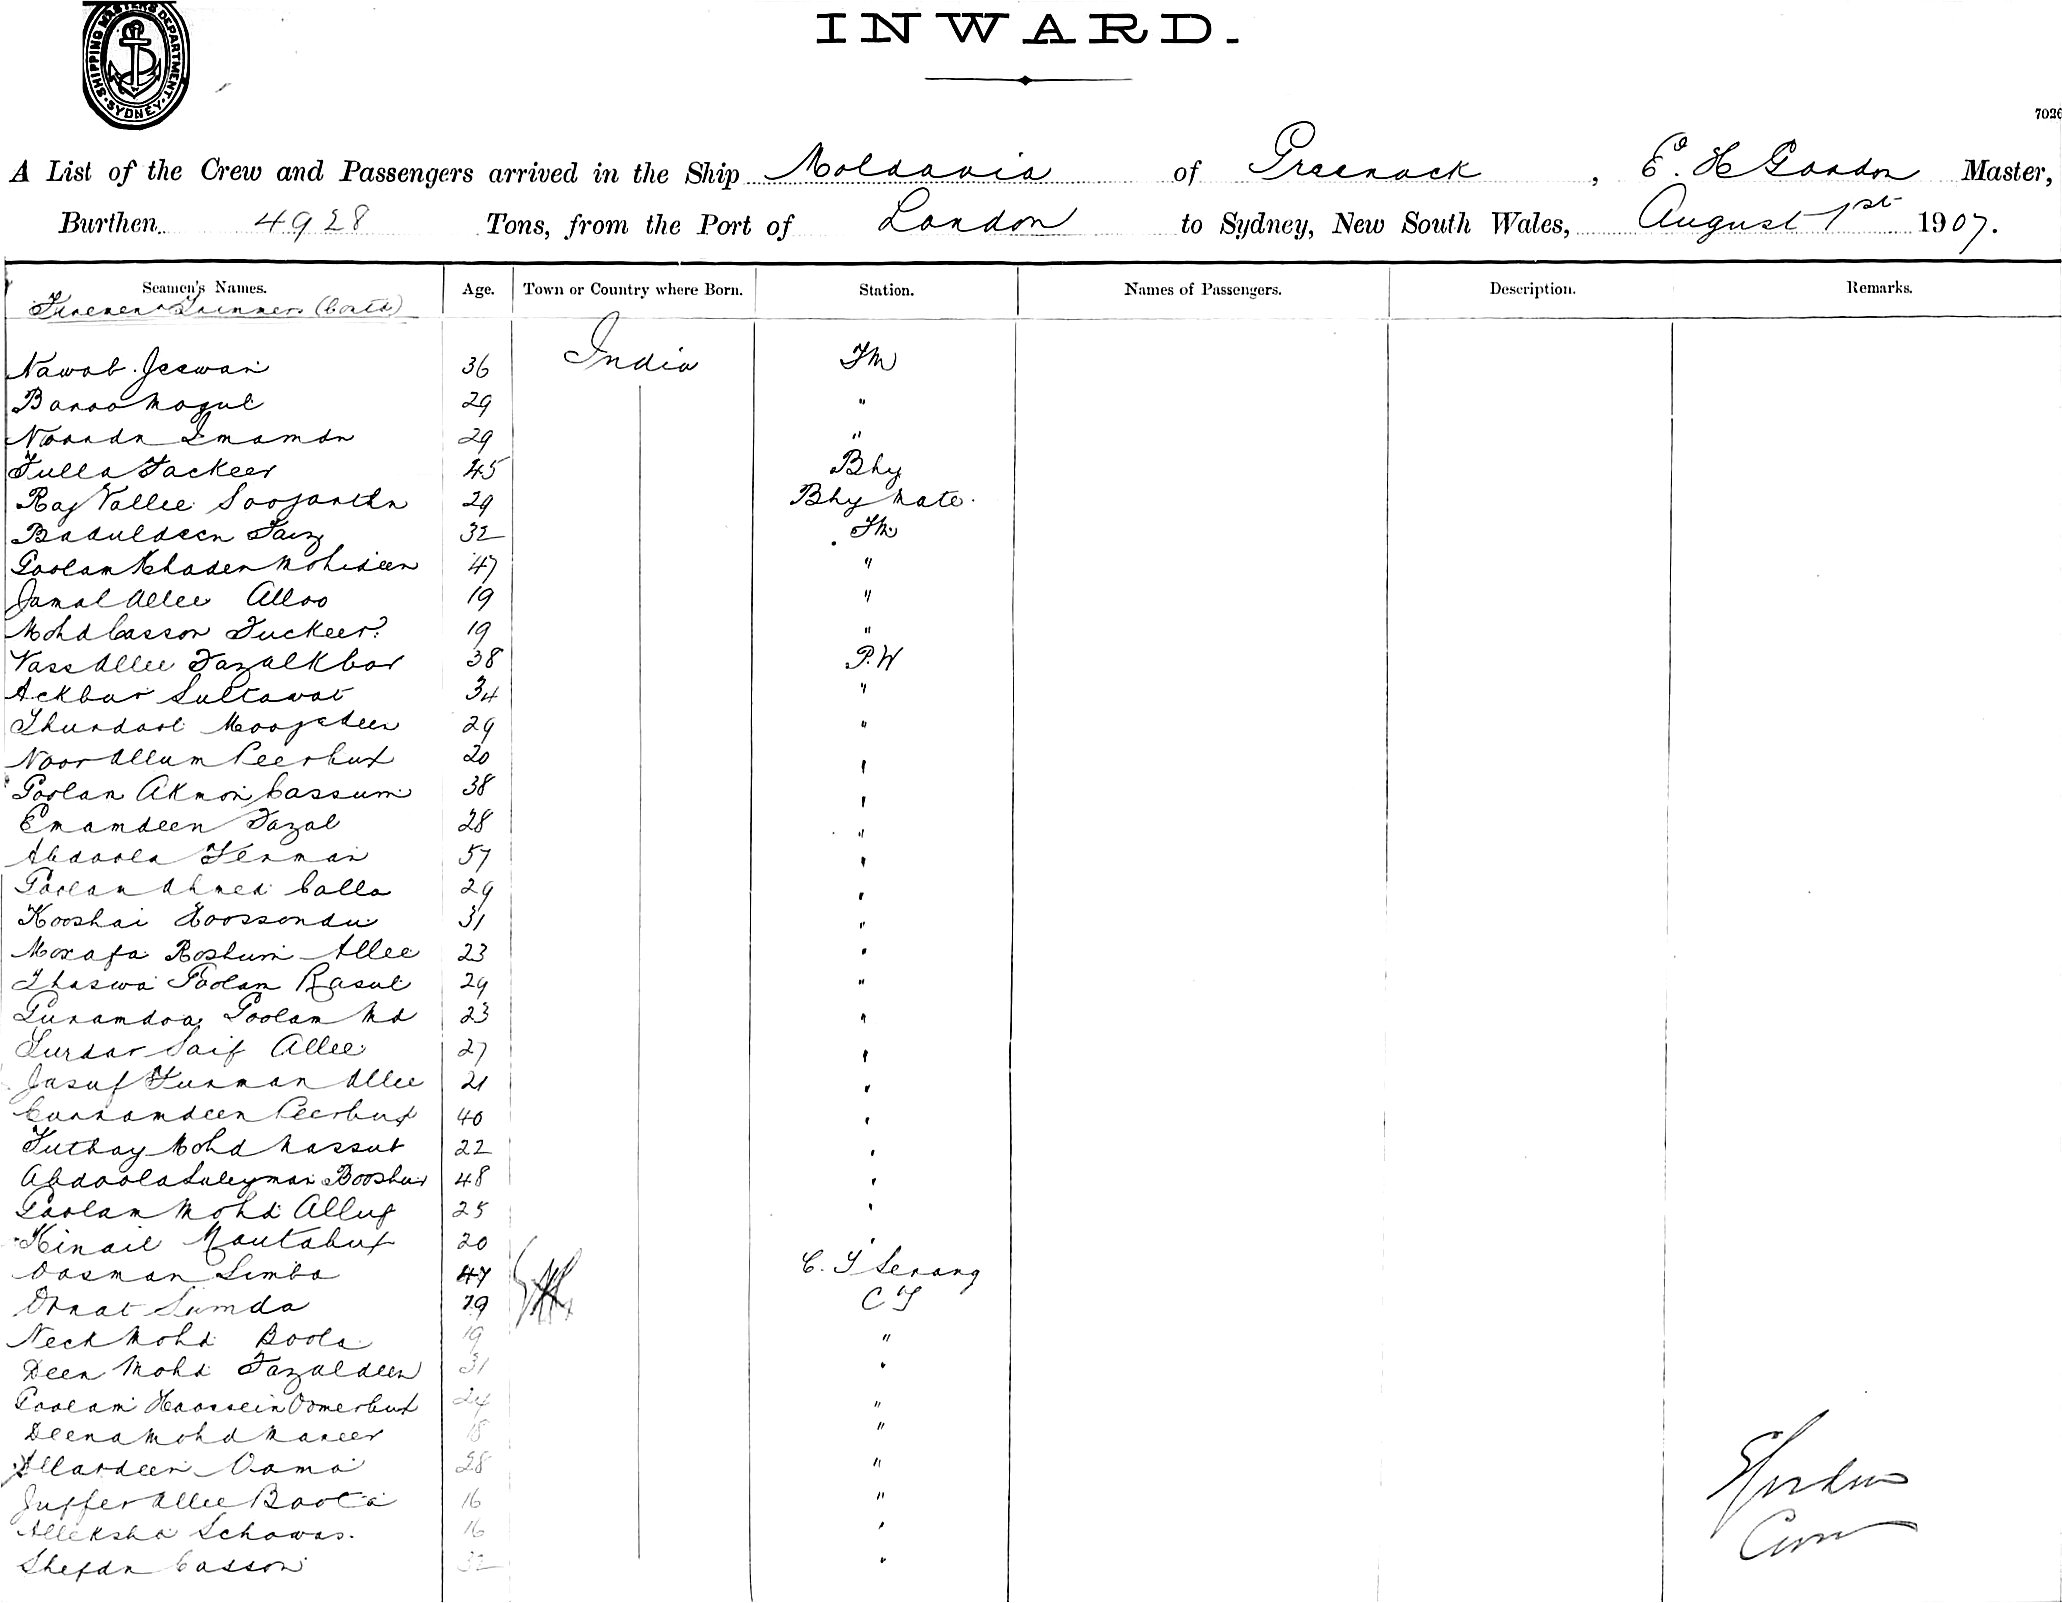 SHIPPING MASTERS DEPARTMENT
SYDNEY
INWARD.
7026
A List of the Crew and Passengers arrived in the Ship Moldavia of Greenock, E. H Gordon Master,
Burthen 4928 Tons, from the Port of London to Sydney, New South Wales, August 1st 1907.
Seamen's Names. Age. Town or Country where Born. Station. Names of Passengers. Description. Remarks.
Firemen & Trimmers (Contd)
Nawab Jeewan 36 India Fm
Banoo Mogul 29 "
Noordn Imamdn 29 "
Fulla Fackeer 45 Bhy
Raj Vallee Soojantkn 29 Bhy Mate.
Baduldeen Faiz 32 Fm
Goolam Khader Mohideen 47 "
Jamal Allee Alloo 19 "
Mohd Casson Fuckeer? 19 "
Vass Allee Fazalkbar 38 P.W
Ackbar Sultawat 34 "
Moojedeen 29 "
Noor Allum Peerbux 20 "
Goolam Akmon Cassum 38 "
Emamdeen Fazal 28 "
Abdoola Ferman 57 "
Goolam Ahmed Calla 29 "
Kooshai Hoossondu 31 "
Moxafa Roshun Allee 23 "
Thaswa Goolam Rasul 29 "
Gunamdoa Goolam Md 23 "
Surdar Saif Allee 27 "
Jasuf Furman Allee 21 "
Curramdeen Peerbux 40 "
Futhay Mohd Massut 22 "
Abdoola Suleyman Booshur 48 "
Goolam Mohd Alluf 25 "
Kinail Moulabux 20 "
Oosman Simba 47 C. T Serang
Simda 19 C T
Neck Mohd Boola 19 "
Deen Mohd Fazaldeen 31 "
Goolam Hoossein Oomerbux 24 "
Deena Mohd Maneer 18 "
Allardeen Oama 28 "
Juffer Allee Boota 16 "
Alleksha Schawas. 16 "
Shefdn Casson 32 "
EHGordon
Com